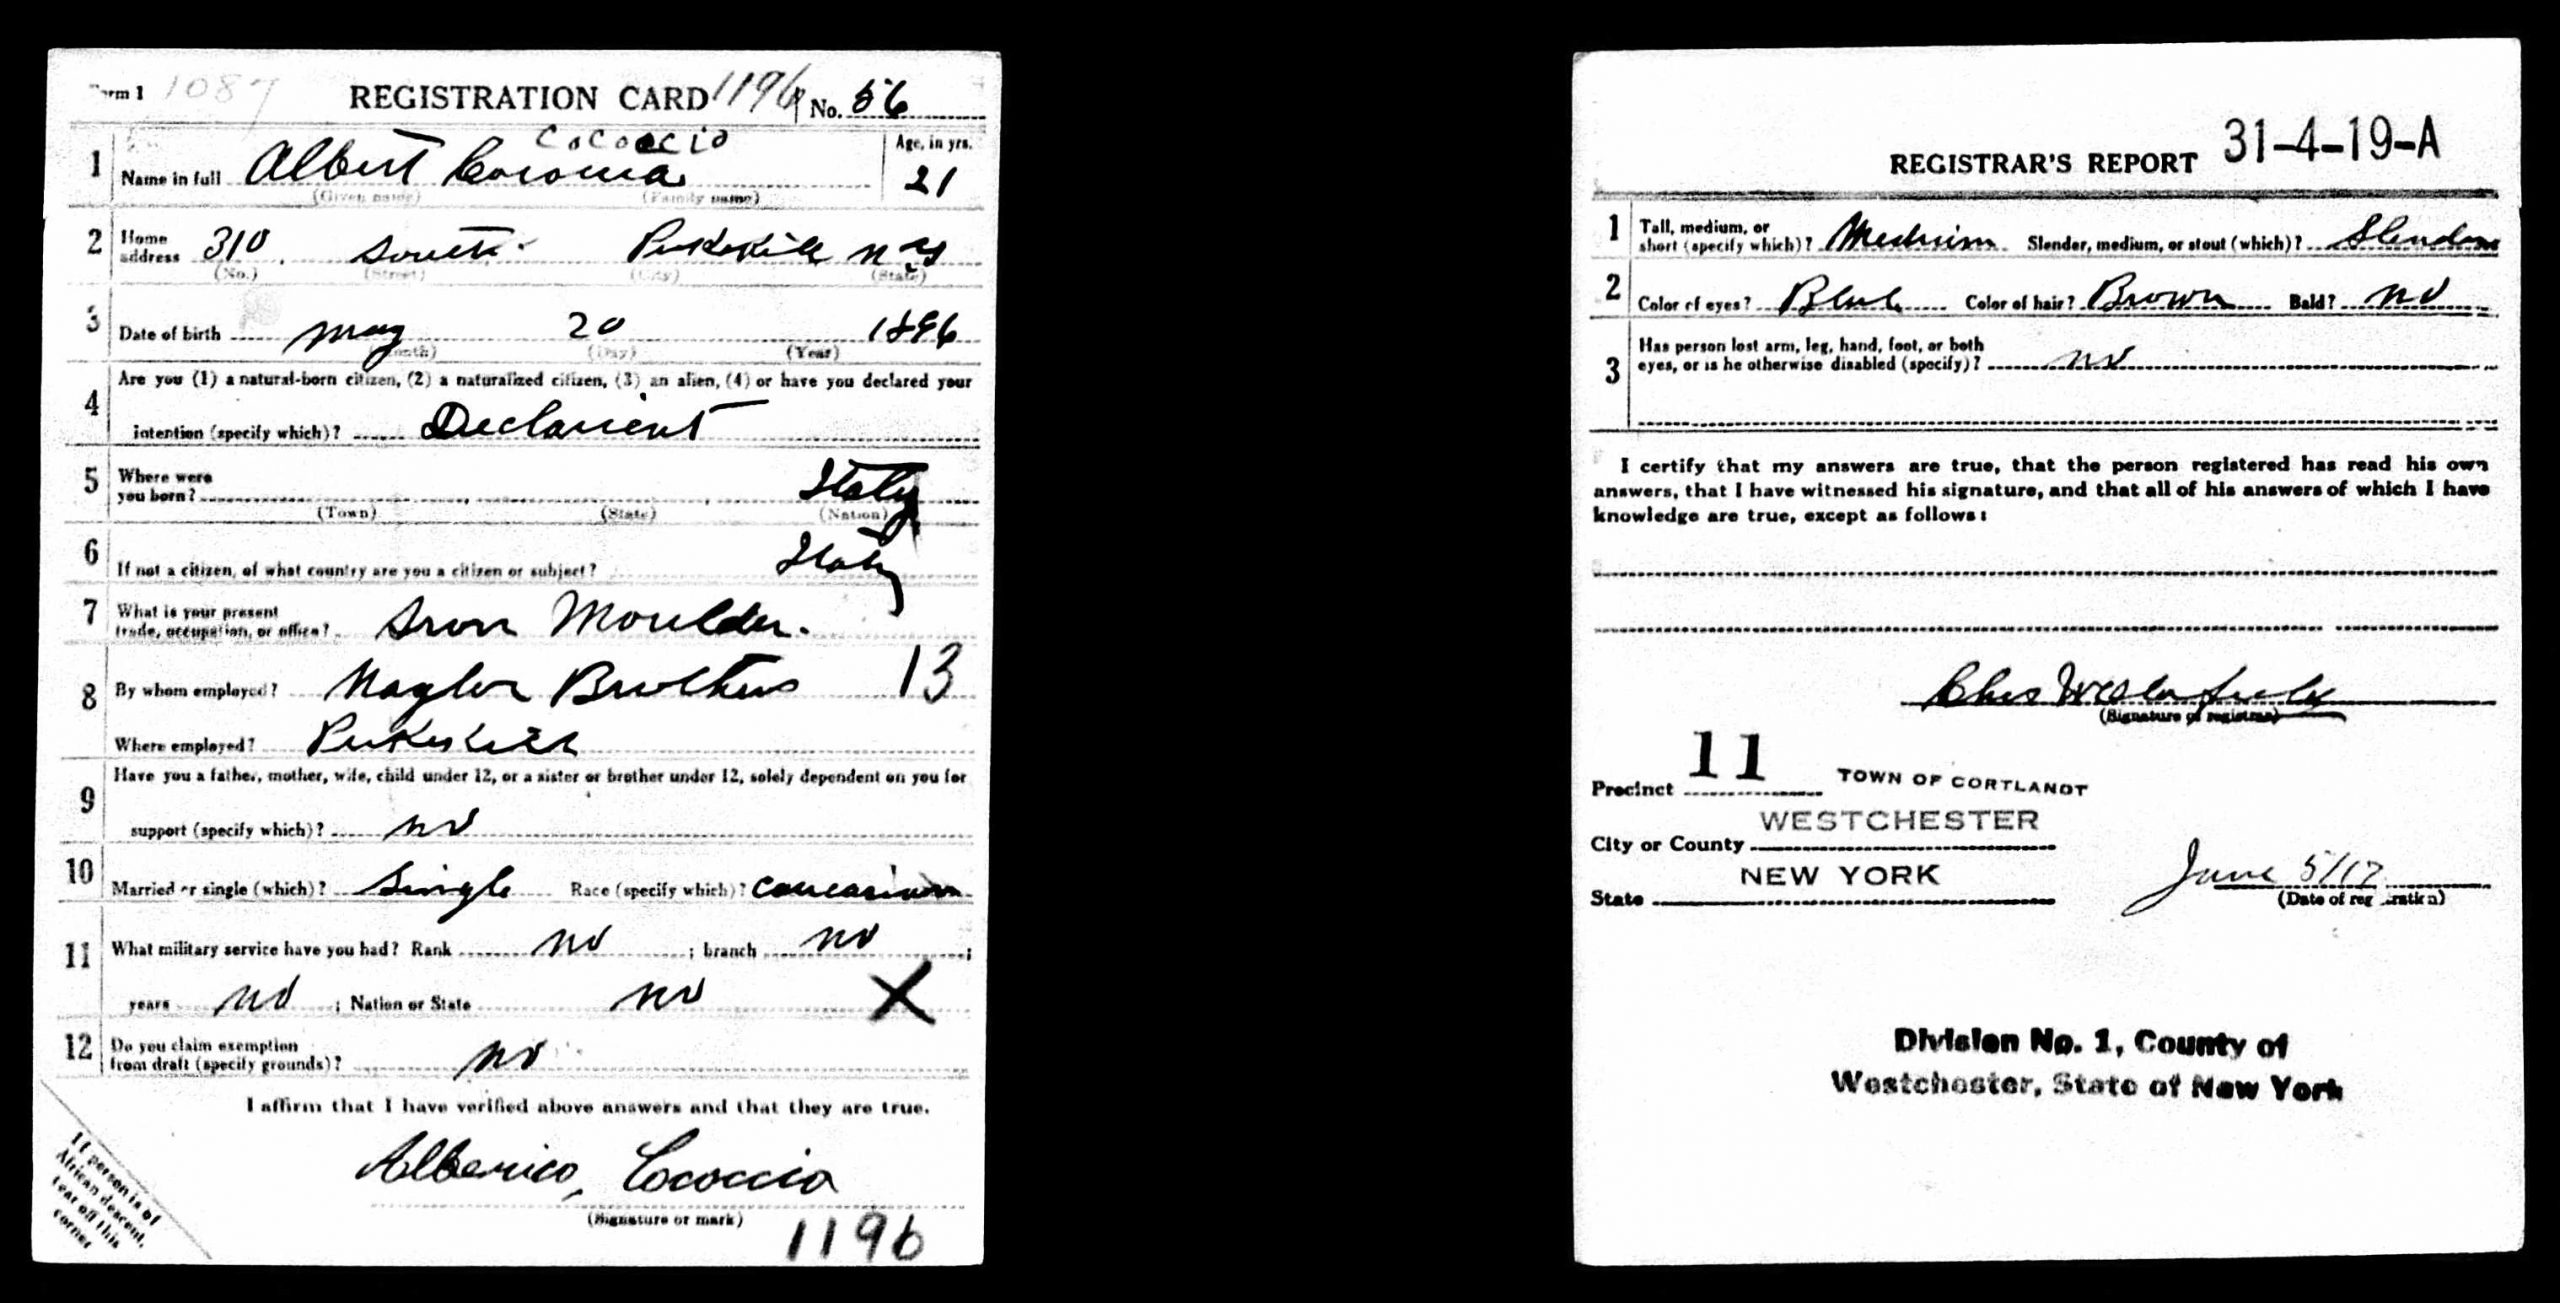 Form 1 1087 REGISTRATION CARD 1196 No. 56
Cococcio
1 Name in full Albert
(Given name) (Family name)
Age, in yrs.
21
2 Home address 310 South Peekskill N Y
(No.) (Street) (City) (State)
3 Date of birth May 20 1896
(Month) (Day) (Year)
4 Are you (1) a natural-born citizen, (2) a naturalized citizen, (3) an alien, (4) or have you declared your
intention (specify which)? Declarient
5 Where were
you born? Italy
(Town) (State) (Nation)
6 If not a citizen, of what country are you a citizen or subject? Italy
7 What is your present
trade, occupation, or office? Iron Moulder.
8 By whom employed? Naylor Brothers 13
Where employed? Peekskill
9 Have you a father, mother, wife, child under 12, or a sister or brother under 12, solely dependent on you for
support (specify which)? no
10 Married or single (which)? Single Race (specify which)? Caucasian
11 What military service have you had? Rank no ; branch no ;
years no ; Nation or State no X
12 Do you claim exemption
from draft (specify grounds)? no
I affirm that I have verified above answers and that they are true.
Alberico, Cococcia
(Signature or mark)
1196
If person is of
African descent,
tear off this
corner
REGISTRAR'S REPORT 31-4-19-A
1 Tall, medium, or
short (specify which)? Medium Slender, medium, or stout (which)? Slender
2 Color of eyes? Blue Color of hair? Brown Bald? no
3 Has person lost arm, leg, hand, foot, or both
eyes, or is he otherwise disabled (specify)? no
I certify that my answers are true, that the person registered has read his own
answers, that I have witnessed his signature, and that all of his answers of which I have
knowledge are true, except as follows:
(Signature of registrar)
Precinct 11 TOWN OF CORTLANDT
City or County WESTCHESTER
State NEW YORK June 5/17
(Date of registration)
Division No. 1, County of
Westchester, State of New York